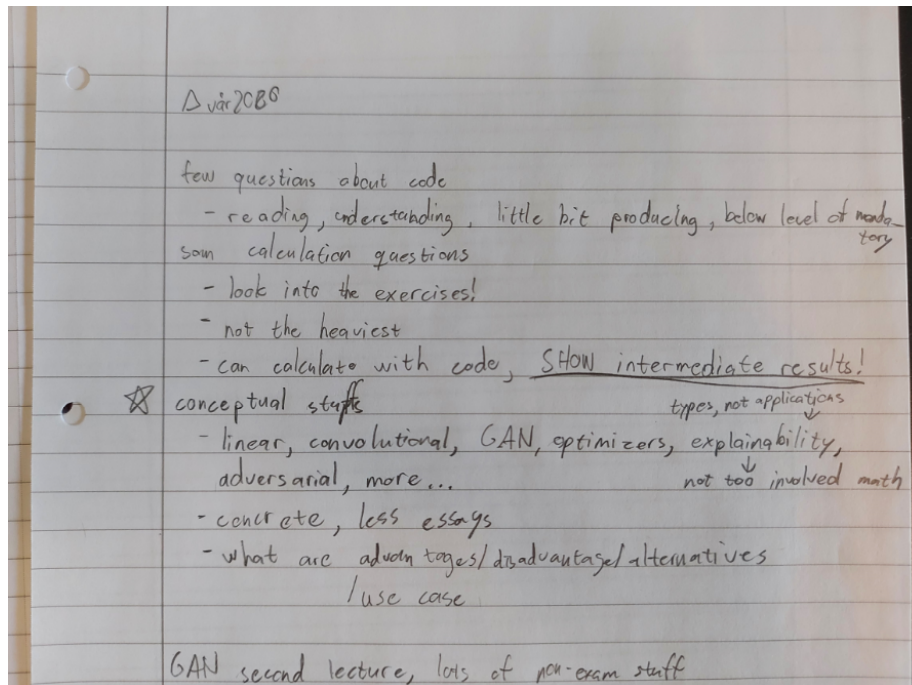 Δ vår 2080
few questions about code
- reading, understanding, little bit producing, below level of manda-
tory
som calculation questions
- look into the exercises!
- not the heaviest
- can calculate with code, SHOW intermediate results!
☆ conceptual stuff
types, not applications
↓
- linear, convolutional, GAN, optimizers, explainability,
↓
adversarial, more...
not too involved math
- concrete, less essays
- what are advantages/disadvantage/alternatives
/use case
GAN second lecture, lots of non-exam stuff